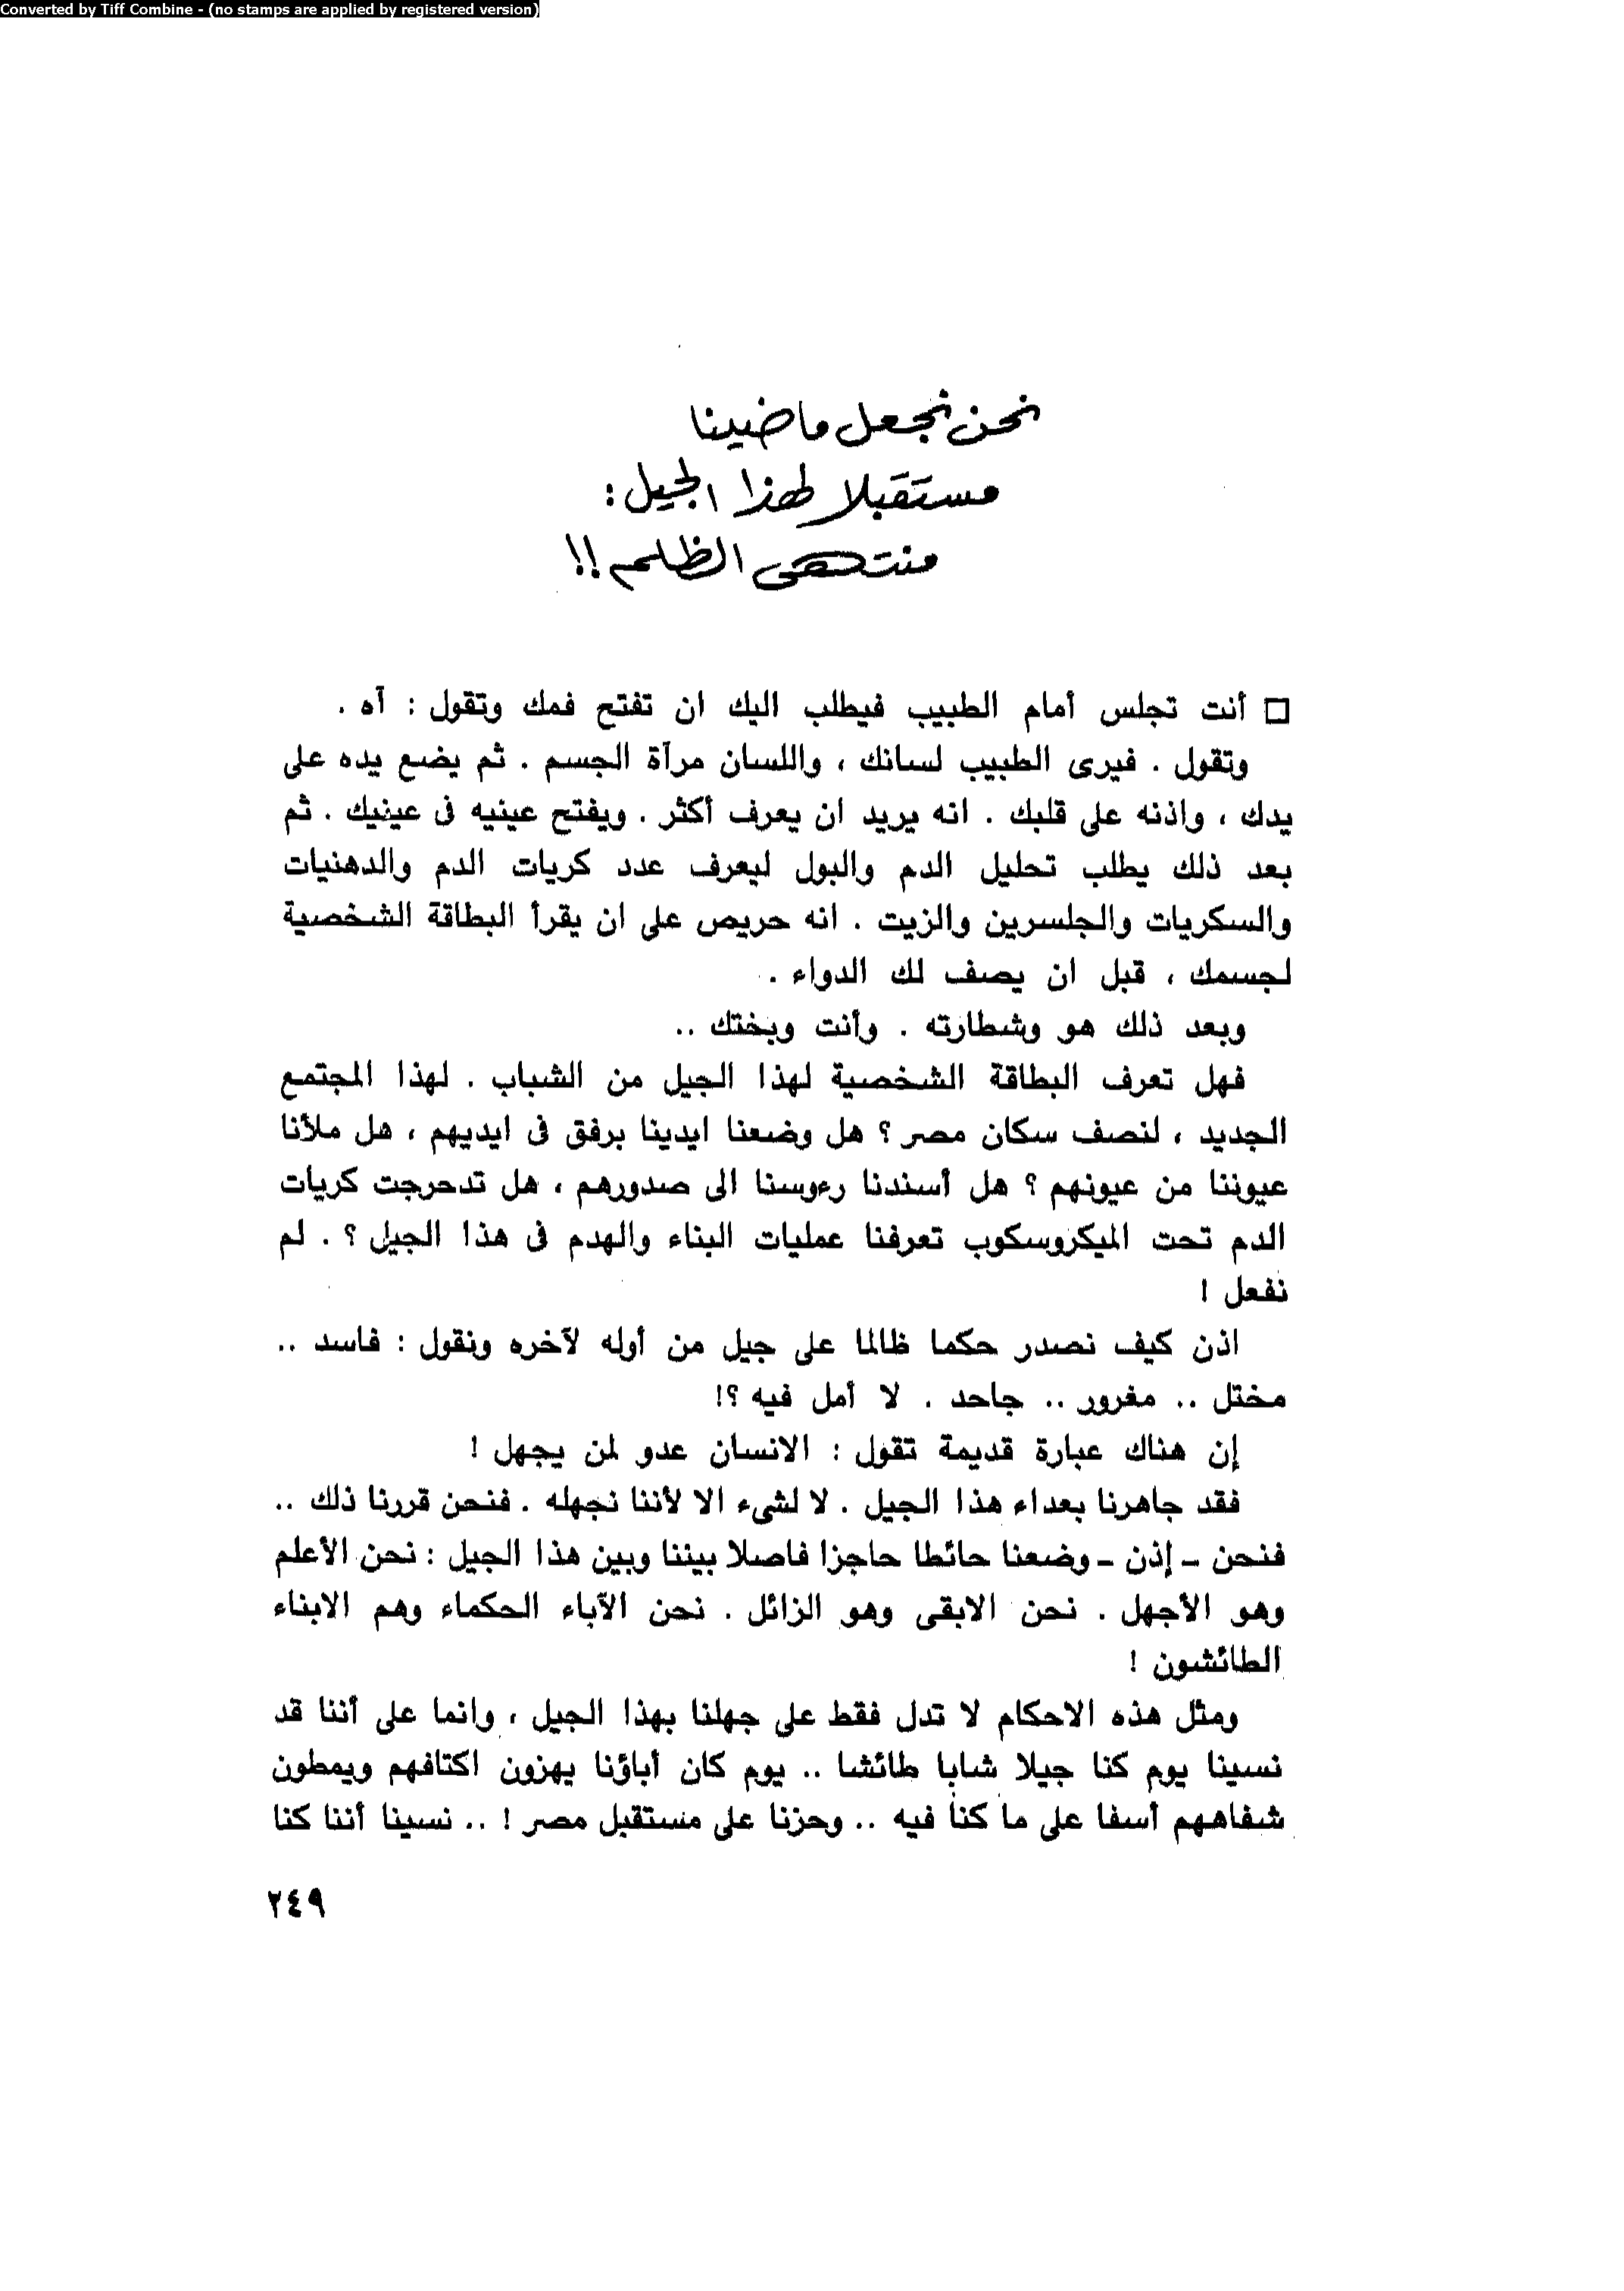 Converted by Tiff Combine - (no stamps are applied by registered version)
نحن نجعل ماضينا
مستقبلا لهذا الجيل :
منتهى الظلم !!
□ أنت تجلس أمام الطبيب فيطلب اليك ان تفتح فمك وتقول : آه .
وتقول . فيرى الطبيب لسانك ، واللسان مرآة الجسم . ثم يضع يده على
يدك ، واذنه على قلبك . انه يريد ان يعرف أكثر . ويفتح عينيه فى عينيك . ثم
بعد ذلك يطلب تحليل الدم والبول ليعرف عدد كريات الدم والدهنيات
والسكريات والجلسرين والزيت . انه حريص على ان يقرأ البطاقة الشخصية
لجسمك ، قبل ان يصف لك الدواء .
وبعد ذلك هو وشطارته . وأنت وبختك ..
فهل تعرف البطاقة الشخصية لهذا الجيل من الشباب . لهذا المجتمع
الجديد ، لنصف سكان مصر ؟ هل وضعنا ايدينا برفق فى ايديهم ، هل ملأنا
عيوننا من عيونهم ؟ هل أسندنا رءوسنا الى صدورهم ، هل تدحرجت كريات
الدم تحت الميكروسكوب تعرفنا عمليات البناء والهدم فى هذا الجيل ؟ . لم
نفعل !
اذن كيف نصدر حكما ظالما على جيل من أوله لآخره ونقول : فاسد ..
مختل .. مغرور .. جاحد . لا أمل فيه ؟!
إن هناك عبارة قديمة تقول : الانسان عدو لمن يجهل !
فقد جاهرنا بعداء هذا الجيل . لا لشىء الا لأننا نجهله . فنحن قررنا ذلك ..
فنحن – إذن – وضعنا حائطا حاجزا فاصلا بيننا وبين هذا الجيل : نحن الأعلم
وهو الأجهل . نحن الابقى وهو الزائل . نحن الآباء الحكماء وهم الابناء
الطائشون !
ومثل هذه الاحكام لا تدل فقط على جهلنا بهذا الجيل ، وانما على أننا قد
نسينا يوم كنا جيلا شابا طائشا .. يوم كان أباؤنا يهزون اكتافهم ويمطون
شفاههم أسفا على ما كنا فيه .. وحزنا على مستقبل مصر ! .. نسينا أننا كنا
٢٤٩